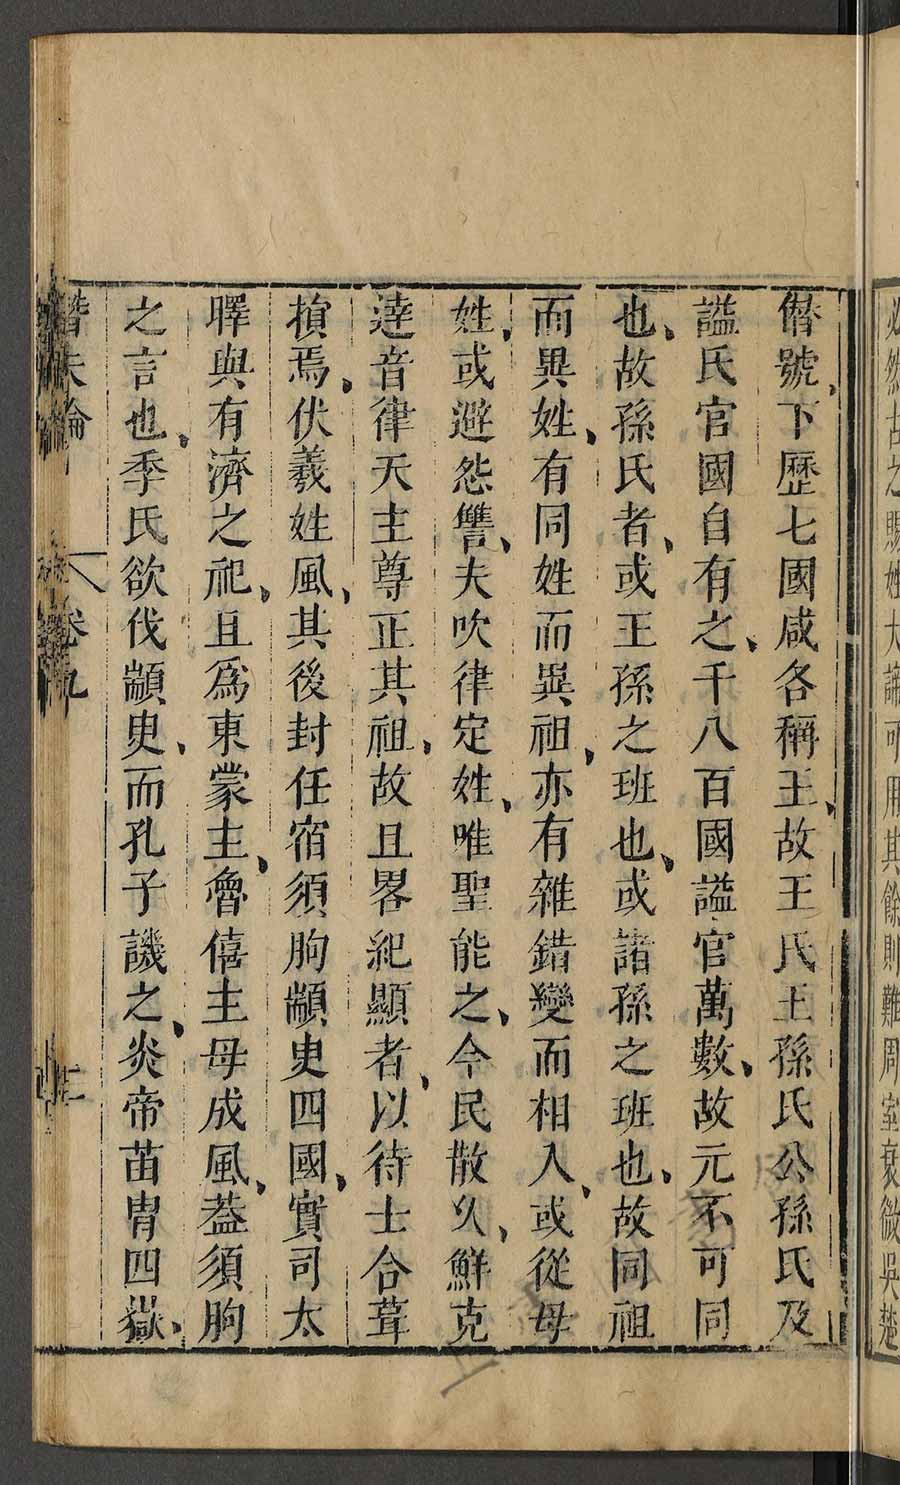 必然古之賜姓大諦可用其餘則難周室衰微吳楚
僭號下歷七國咸各稱王故王氏王孫氏公孫氏及
謚氏官國自有之千八百國謚官萬數故元不可同
也故孫氏者或王孫之班也或諸孫之班也故同祖
而異姓有同姓而異祖亦有雜錯變而相入或從母
姓或避怨讐夫吹律定姓唯聖能之今民散久鮮克
達音律天主尊正其祖故且畧紀顯者以待士合葺
損焉伏羲姓風其後封任宿須朐顓㬰四國實司太
皥與有濟之祀且爲東蒙主魯僖主母成風葢須朐
之言也季氏欲伐顓㬰而孔子譏之炎帝苗冑四嶽
潛夫論
卷九
二